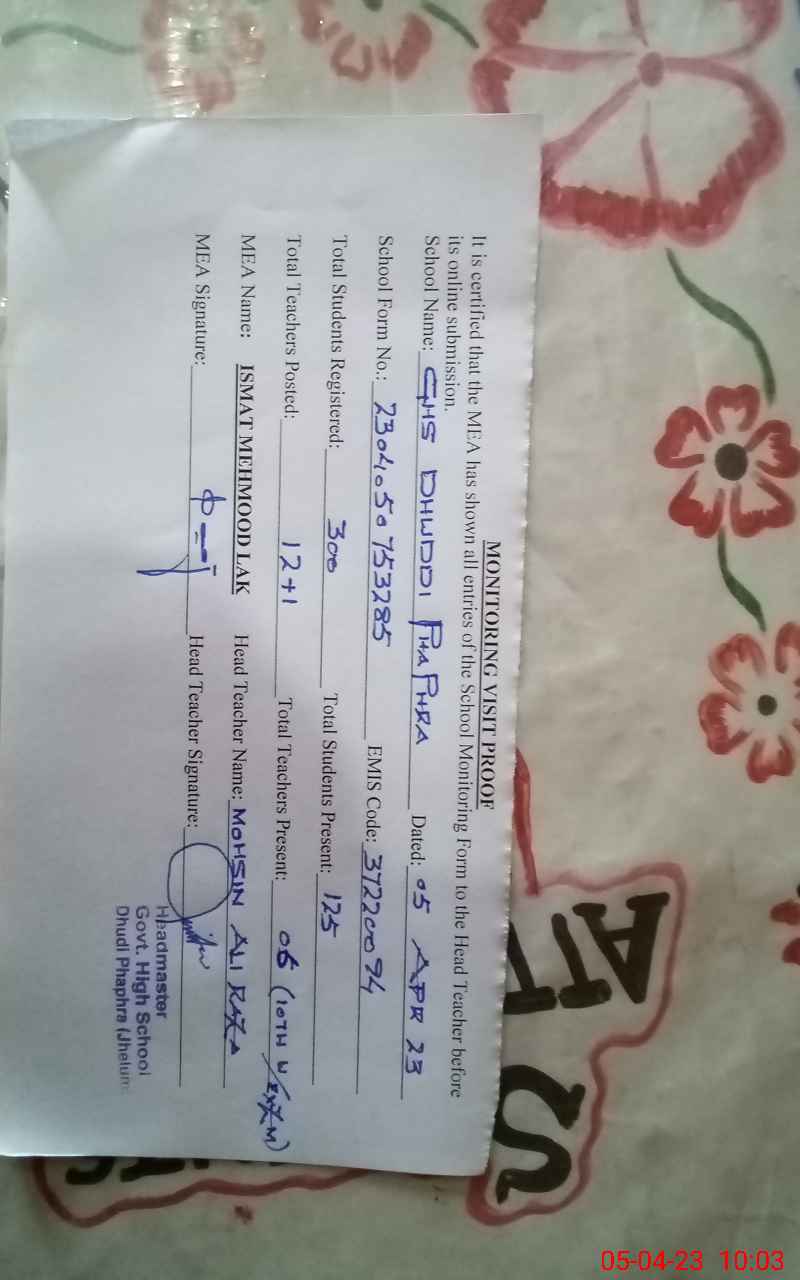 MONITORING VISIT PROOF
It is certified that the MEA has shown all entries of the School Monitoring Form to the Head Teacher before
its online submission.
School Name: GHS DHUDDI PHAPHRA Dated: 05 APR 23
School Form No.: 2304050753285 EMIS Code: 37220094
Total Students Registered: 300 Total Students Present: 125
Total Teachers Posted: 12+1 Total Teachers Present: 06 (10TH EXAM)
MEA Name: ISMAT MEHMOOD LAK Head Teacher Name: MOHSIN ALI RAZA
MEA Signature: Head Teacher Signature:
Headmaster
Govt. High School
Dhudi Phaphra (Jhelum
05-04-23 10:03